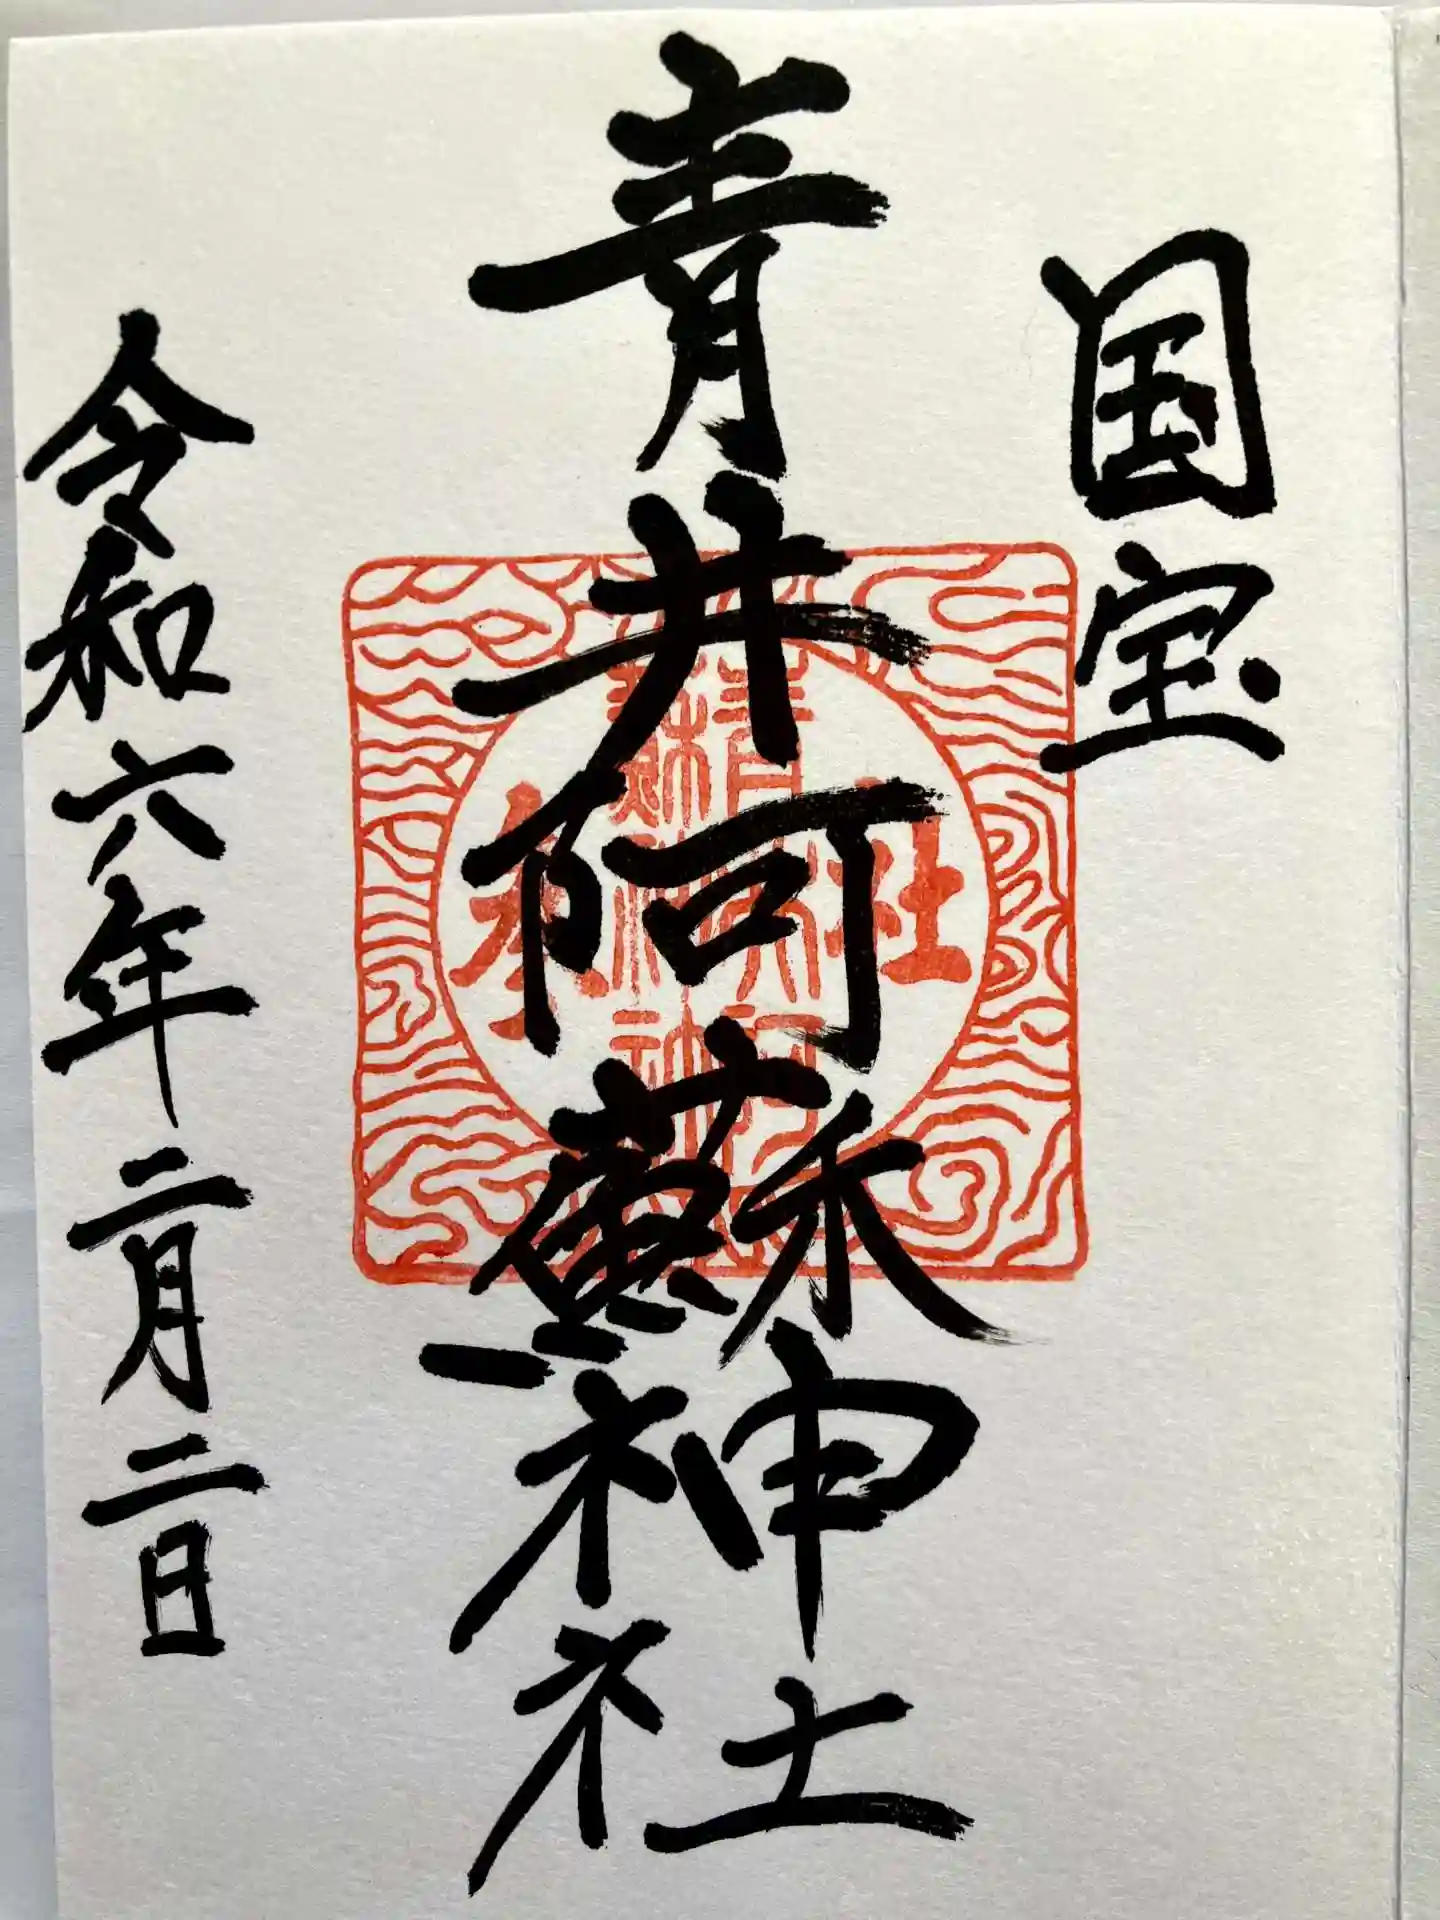 国宝
青井阿蘇神社
令和六年二月二日